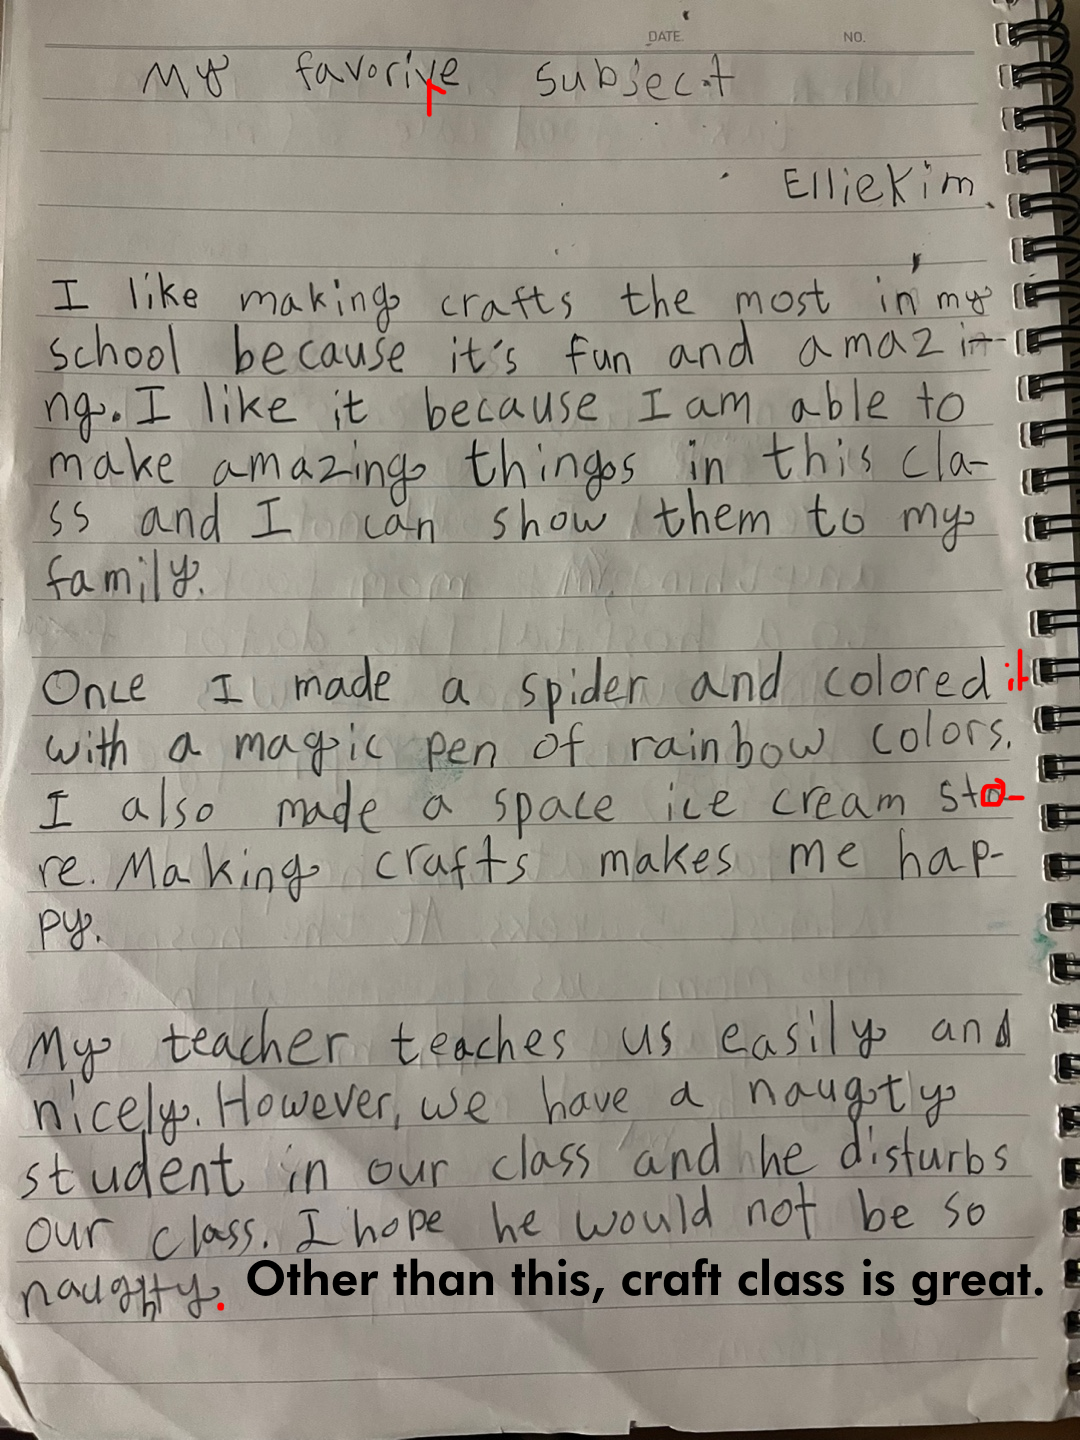 DATE. NO.
My favorite subject
Ellie Kim.
I like making crafts the most in my
school because it's fun and amazi-
ng. I like it because I am able to
make amazing things in this cla-
ss and I can show them to my
family.
Once I made a spider and colored it
with a magic pen of rainbow colors.
I also made a space ice cream sto-
re. Making crafts makes me hap-
py.
My teacher teaches us easily and
nicely. However, we have a naugty
student in our class and he disturbs
our class. I hope he would not be so
naughty. Other than this, craft class is great.